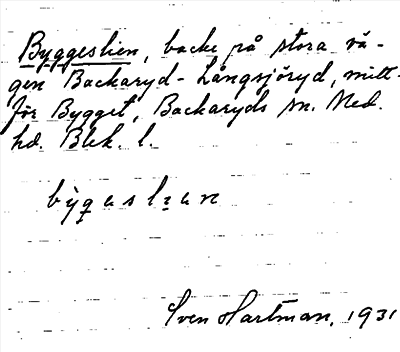 Byggeslien, backe på stora vä-
gen Backaryd - Långsjöryd, mitt-
för Bygget, Backaryds sn. Med.
hd. Blek. l.
Sven Hartman, 1931